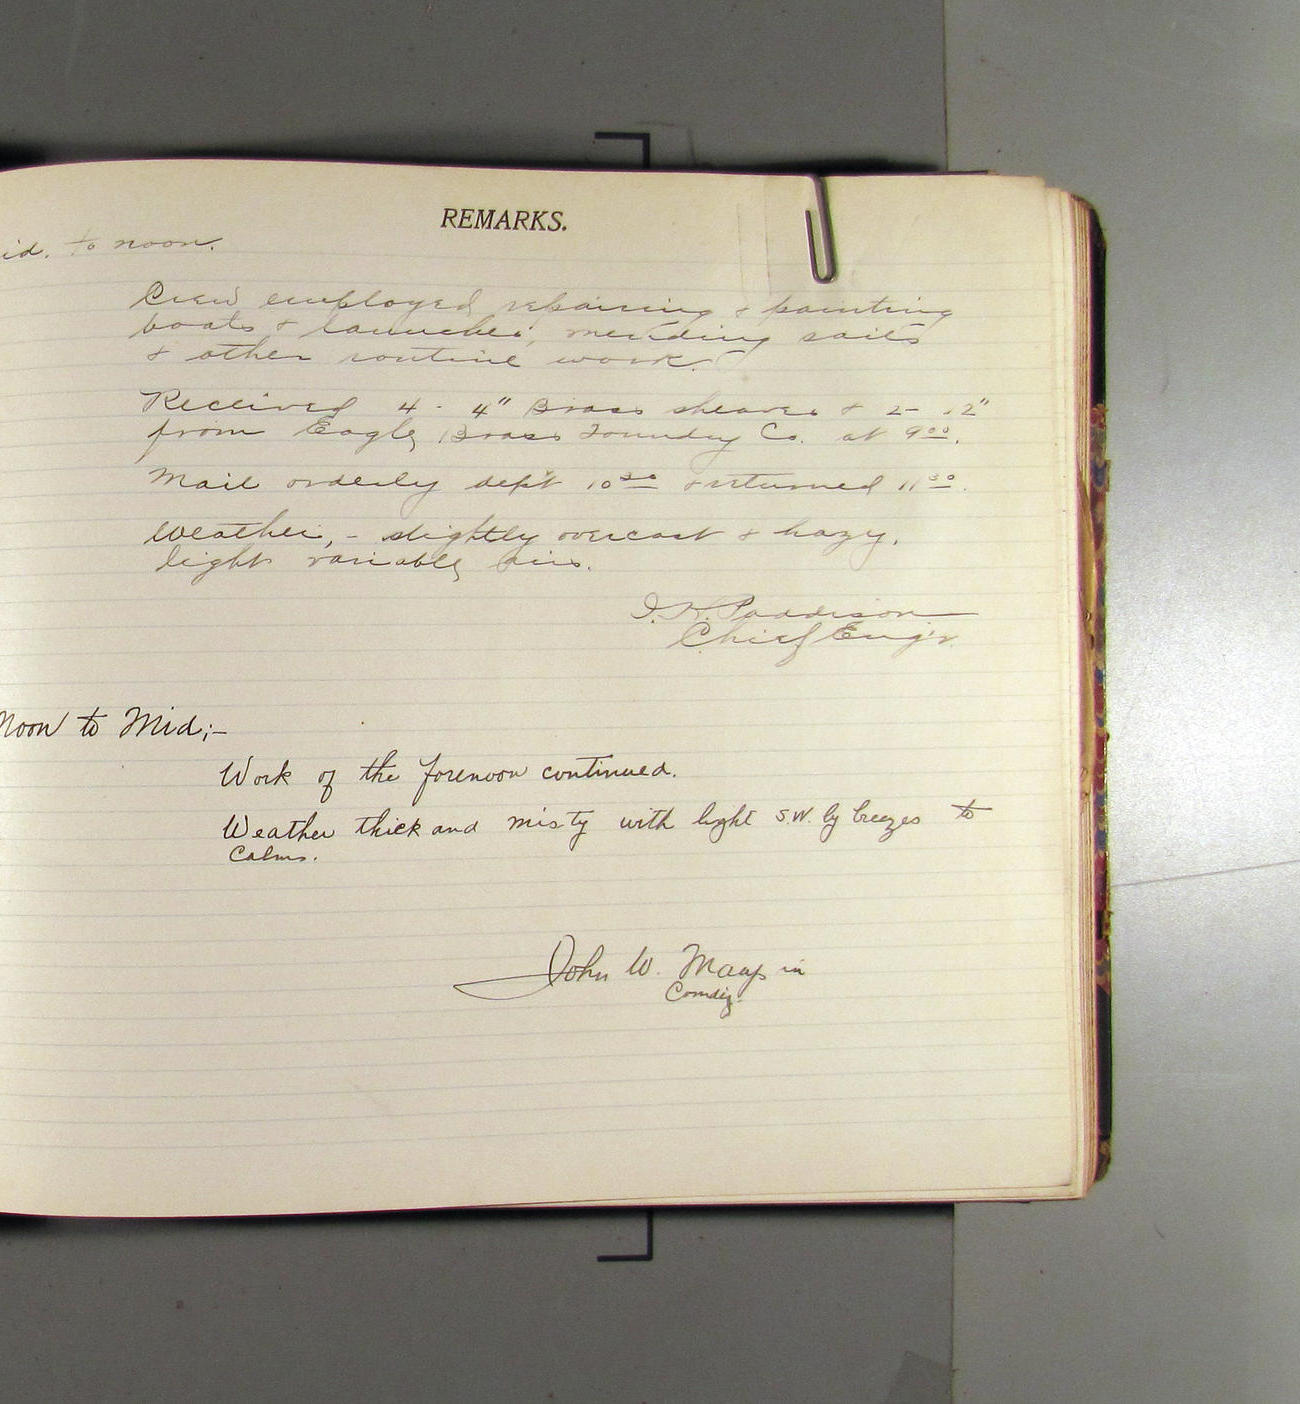 REMARKS.
id. to noon.
Crew employed repairing & painting
boats & launches, mending sails
& other routine work.
Received 4 - 4" Brass sheaves & 2 - 2"
from Eagle Brass Foundry Co. at 9⁰⁰.
Mail orderly dept 10³⁰ & returned 11³⁰.
Weather, - slightly overcast & hazy,
light variable airs.
Paddison
Chief Eng'r.
Noon to Mid;-
Work of the forenoon continued.
Weather thick and misty with light S.W. by breezes to
Calms.
John W.
Comdg.